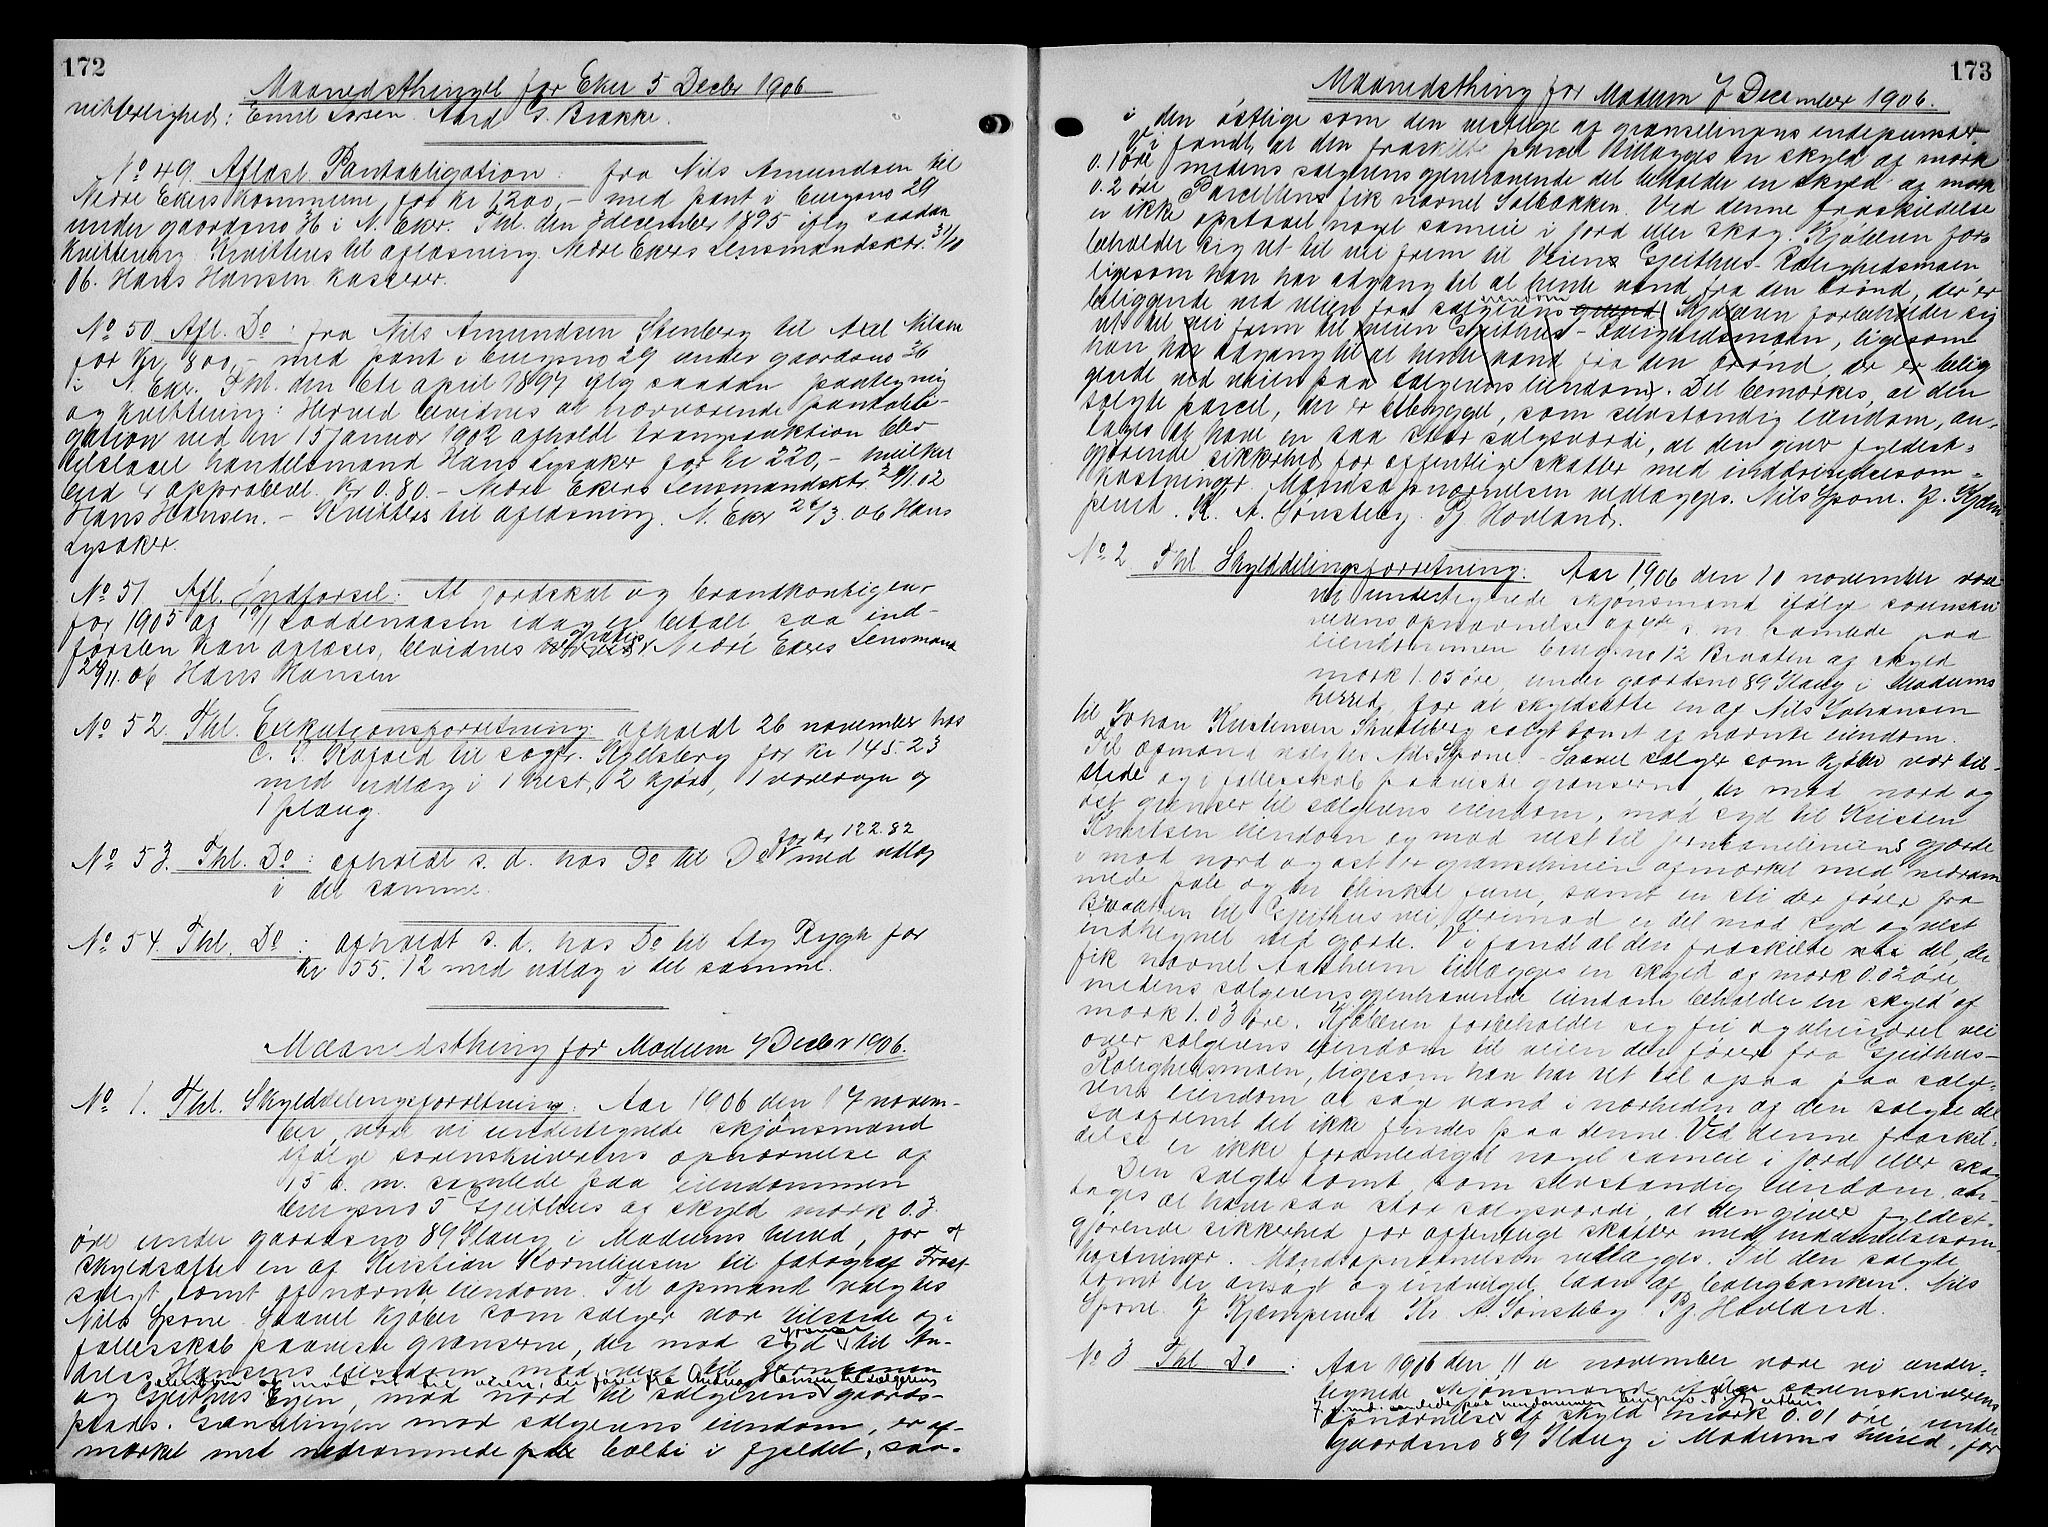 172
Maanedsthinget for Eker 5 Decbr 1906
vitterlighed: Emil Larsen. Aard G. Brække.
No 49. Aflæst Pantobligation: fra Nils Amundsen til
Nedre Ekers Kommune, for Kr 1,200,- med pant i brugsno 29
under gaardsno 36 i N. Eker. Thl. den december 1895 iflg saadan
Kvittering. Kvitteres til aflæsning Nedre Ekers Lensmandsktr. 31/10
06. Hans Hansen Kasserer.
No 50. Afl. Do: fra Nils Amundsen Stenberg til Axel Nilsen
for Kr. 800,- med pant i brugsno 29 under gaardsno 36
i N. Eker. Thl. den 6te april 1897 iflg saadan paategnig
og kvittering: Herved bevidnes at nærværende pantobli-
gation ved en 15 Januar 1902 afholdt tvangsauktion blev
tilslaaet handelsmand Hans Lysaker for kr 220,- hvilket
bud er approberet. Kr 0.80.- Nedre Ekers Lensmandsktr. /1.02
Hans Hansen.- Kvitteres til aflæsning. N. Eker 26/3.06 Hans
Lysaker.
No 51 Afl. Indførsel: At jordskat og brandkontigent
for 1905 af 19/1 Loddenaasen idag er betalt saa ind-
førslen kan aflæses, bevidnes gratis Nedre Ekers Lensmand
29/11.06 Hans Hansen
No 52. Thl. Exekutionsforretning: afholdt 26 november hos
C. T. Rafoed til sagf. Kjelsberg for Kr 145.23
med udlæg i 1 hest, 2 kjør, 1 vorevogn og
1 plaug.
for kr 122.82
No 53. Thl. Do: afholdt s. d. hos Do til Do med udlæg
i det samme.
No 54. Thl. Do: afholdt s. d. hos Do til Rygh for
Kr 55.12 med udlæg i det samme.
Maanedsthing for Modum 7 Decbr 1906.
No 1. Thl. Skylddelingsforretning: Aar 1906 den 17 novem-
ber, vare vi undertegnede skjønsmænd
ifølge sorenskriverens opnævnelse af
15 s. m. samlede paa eiendommen
brugsno 5 Gjeithus af skyld mark 0.3
øre under gaardsno 89 Haug i Modums herred, for at
skyldsætte en af Kristian Korneliusen til fotograf Frost
solgt tomt af nævnte eiendom. Til opmand valgtes
Nils Spone. Saavel kjøber som sælger var tilstede og i
fællesskab paaviste grænserne, der mod syd grænser til An-
dreas Hansens eiendom, mod vest til Jernbanen
eiendom og mod øst til veien, der fører fra Andreas Hansen til sælgerens
og Gjeithus Eyen, mod nord til sælgerens gaards-
plads. Grænselingen mod sælgerens eiendom, er af-
mærket med nedrammede pæle bolte i fjeldet, saa-
173
Maanedsthing for Modum 7 December 1906.
i den østlige som den vestlige af grænselingens endepunkter
Vi fandt, at den fraskilte parcel tillægges en skyld af mark
0.1 øre medens sælgerens gjenværende del beholder en skyld af mark
0.2 øre Parcellens fik navnet Solbakken. Ved denne fraskildelse
er ikke opstaaet noget sameie i jord eller skog. Kjøberen for-
beholder sig ret til vei frem til Veien Gjeithus-Kalighedsmoen
ligesom han har adgang til at hente vand fra den brønd, der er
beliggende ved veien fra sælgerens eiendom grund Kjøberen forbeholder sig
ret til vei frem til veien Gjeithus-Kalighedsmoen, ligesom
han har adgang til at hente vand fra den brønd, der er belig
gende ved veien paa Sælgerens eiendom. Det bemærkes, at den
solgte parcel, der er bebygget, som selvstændig eiendom, an-
tages at have en saa stor salgsværdi, at den giver fyldest-
gjørende sikkerhed for offentlige skatter med inddrivelsesom-
kostninger. Mandsopnævnelsen vedlægges. Nils Spone. J. Kjæm
perud. Kr. A. Tønsteby. Pj Hovland.
No 2 Thl Skylddelingsforretning: Aar 1906 den 10 november vare
vi undertegnede skjønsmænd ifølge sorenskri
verens opnævnelse af s. m. samlede paa
eiendommen brugsno 12 Braaten af skyld
mark 1.05 øre, under gaardsno 89 Haug i Modums
herred, for at skyldsætte en af Nils Johansen
til Johan Kristensen Skutteberg solgt tomt af nævnte eiendom.
Til opmand valgtes Nils Spone. Saavel sælger som kjøber var til-
stede og i fællesskab paaviste grænserne, der mod nord og
øst grænser til sælgerens eiendom, mod syd til Kristen
Knutsen eiendom og mod vest til jernbanelinien gjærde
i mod nord og øst er grænselinien afmærket med nedram
mede pæle og en blinket furu, samt en sti der fører fra
Braaten til Gjeithus vei, derimod er det mod syd og vest
indhegnet ved gjærde. Vi fandt at den fraskilte del, der
fik navnet Aasheim tillægges en skyld af mark 0.02 øre,
medens sælgerens gjenhavende eiendom beholder en skyld af
mark 1.03 øre. Kjøberen forbeholder sig fri og uhindret vei
over sælgerens eiendom til veien der fører fra Gjeithus-
Kalighedsmoen, ligesom han har ret til opaa paa sælge-
rens eiendom at søge vand i nærheden af den solgte del
saafremt det ikke findes paa denne. Ved denne fraskil-
delse er ikke foranlediget noget sameie i jord eller skog
Den solgte tomt som selvstændig eiendom an-
tages at have saa stor salgsværdi, at den giver fyldest-
gjørende sikkerhed for offentlige skatter med inddrivelsesom
kostninger. Mandsopnævnelsen vedlægges. Til den solgte
tomt er ansøgt og indvilget laan af boligbanken. Nils
Spone. J Kjæmperud Kr. A. Tønsteby Pj Hovland.
No 3 Thl Do: Aar 1906 den 11 november vare vi under-
tegnede skjønsmænd ifølge sorenskriverens
samlede paa eiendommen brugsno Gjeithus
opnævnelse af skyld mark 0.01 øre, under
gaardsno 89 Haug i Modums herred, for